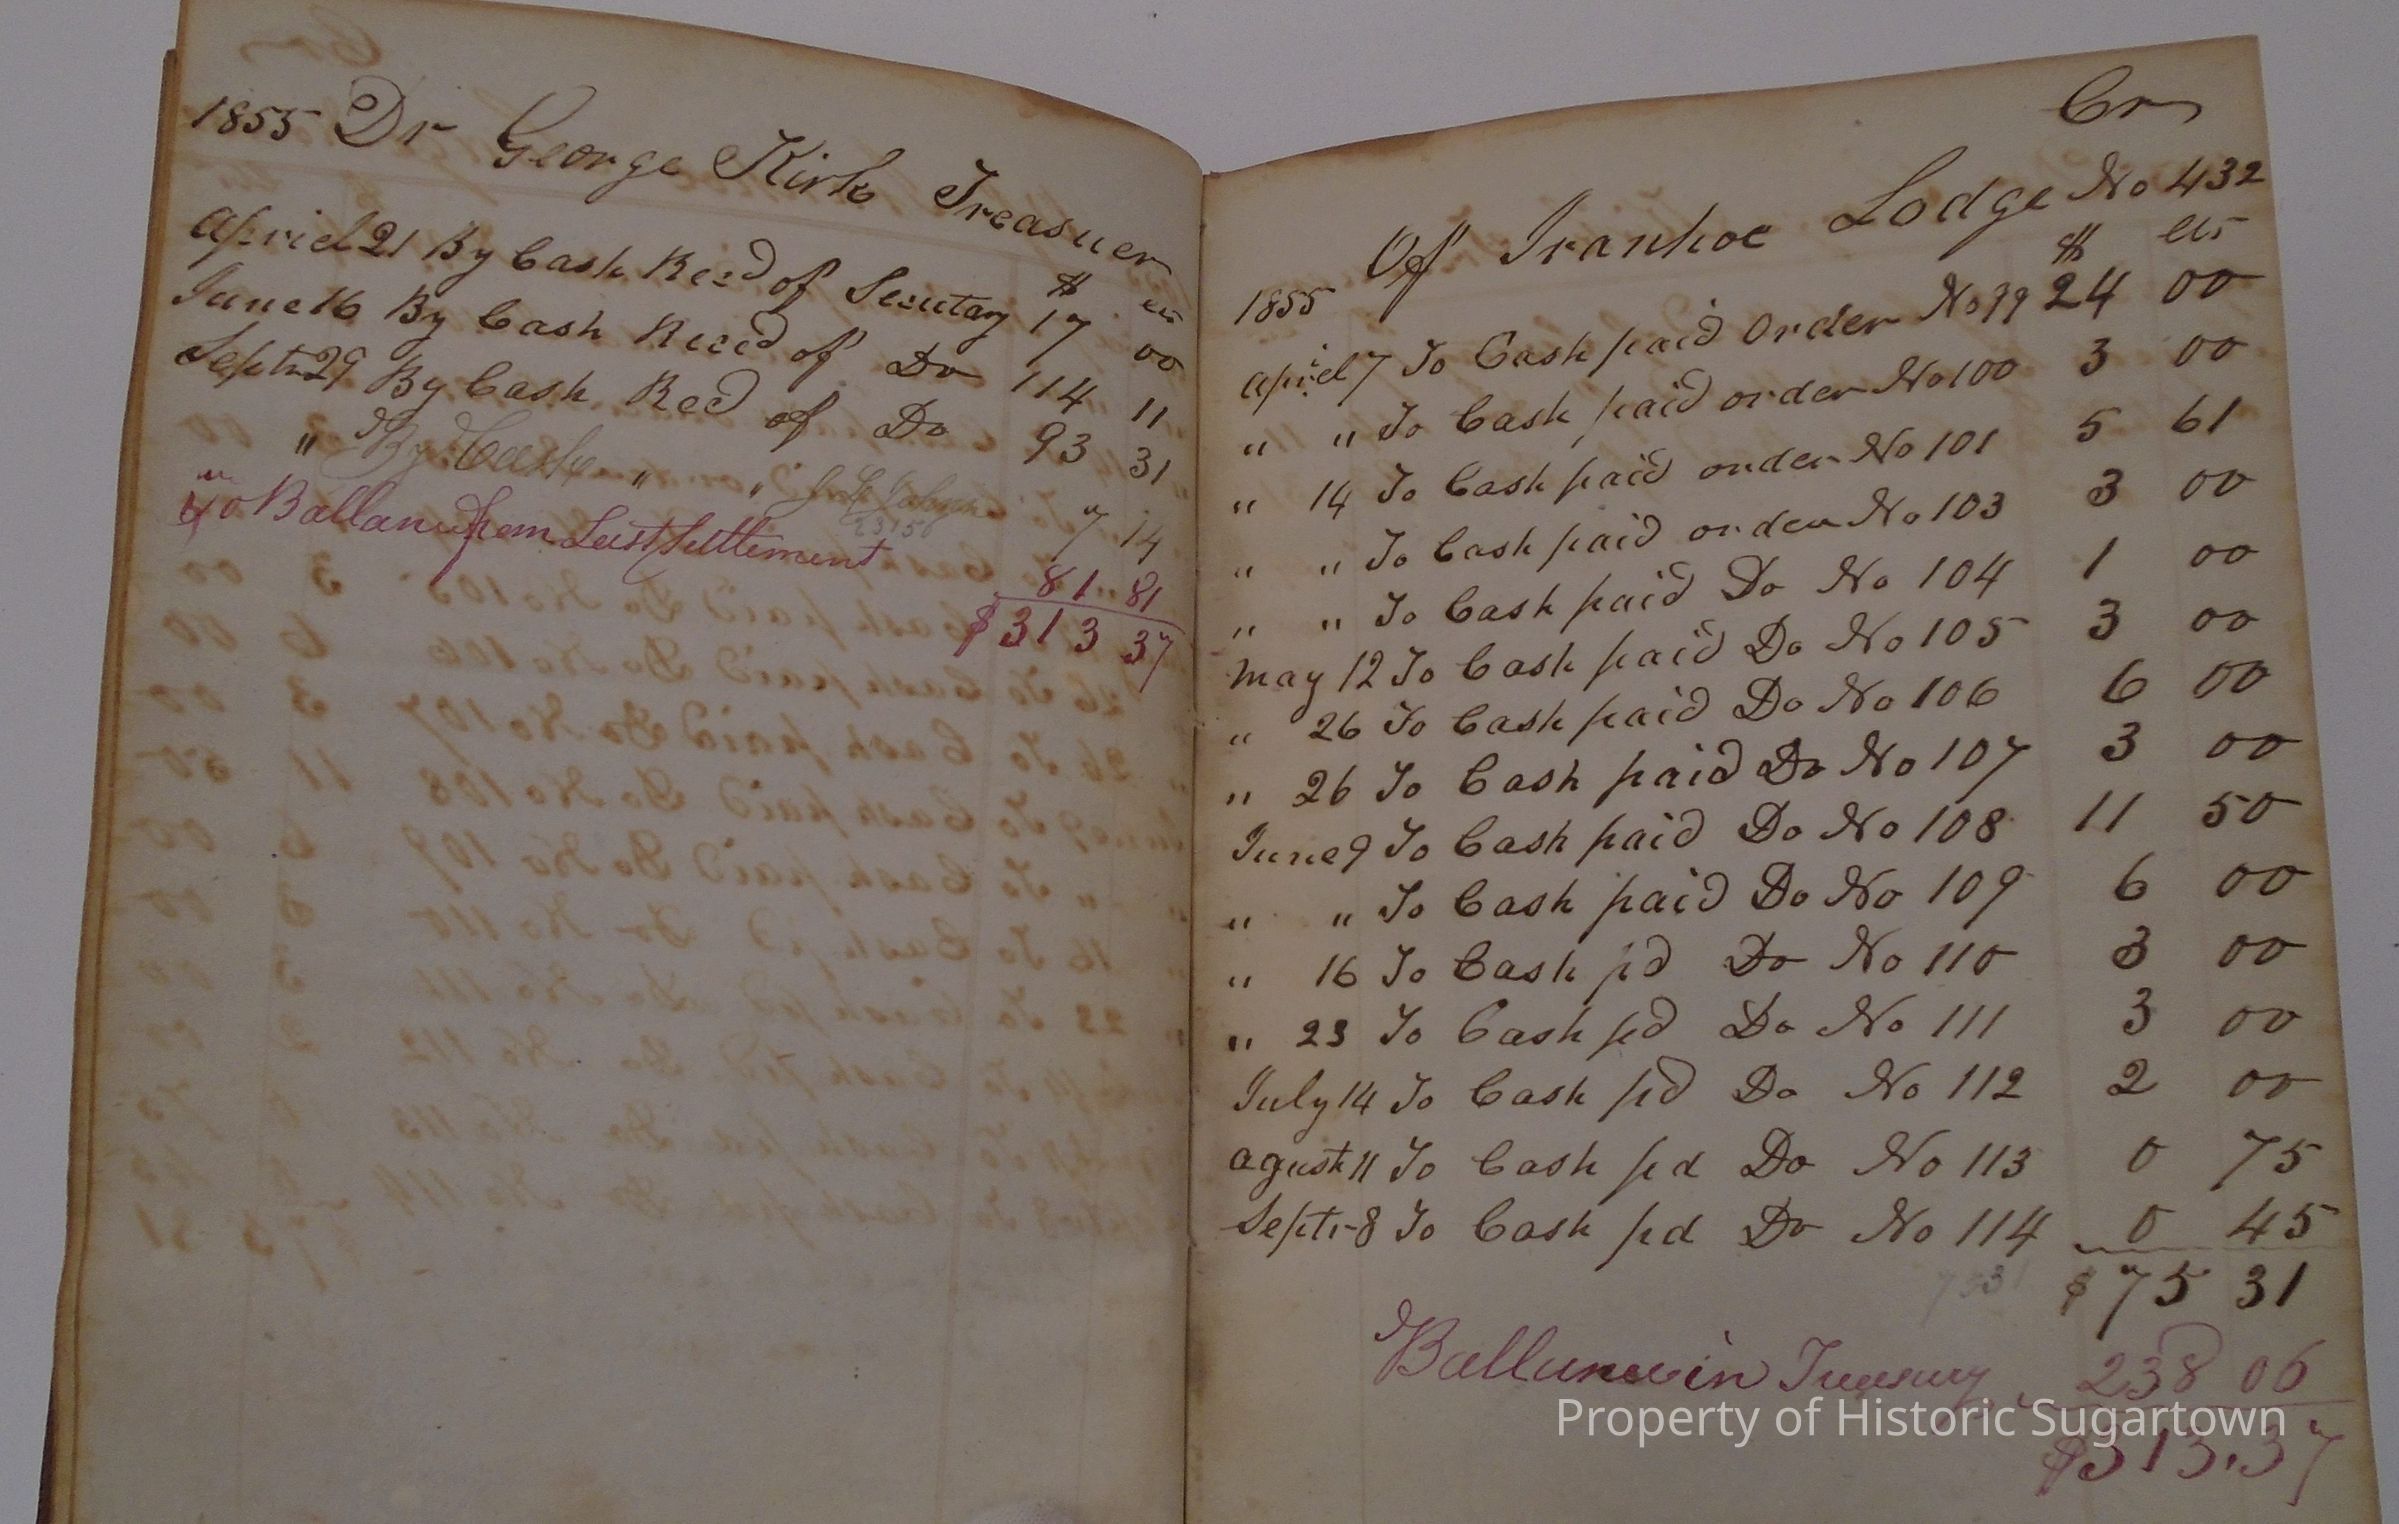 1855 Dr George Kirk Treasuer
$ cts
Apriel 21 By Cash Recd of Secutary 17 00
June 16 By Cash Recd of Do 114 11
Septr 29 By Cash Red of Do 93 31
" By Cash " " 7 14
23156
To Ballance from Last Settlement 81 81
$ 313 37
Cr
Of Ivanhoe Lodge No 432
1855 $ cts
Apriel 7 To Cash paid Order No 99 24 00
" " To Cash paid order No 100 3 00
" 14 To Cash paid order No 101 5 61
" " To Cash paid order No 103 3 00
" " To Cash paid Do No 104 1 00
May 12 To Cash paid Do No 105 3 00
" 26 To Cash paid Do No 106 6 00
" 26 To Cash paid Do No 107 3 00
June 9 To Cash paid Do No 108 11 50
" " To Cash paid Do No 109 6 00
" 16 To Cash pd Do No 110 3 00
" 23 To Cash pd Do No 111 3 00
July 14 To Cash pd Do No 112 2 00
Agust 11 To Cash pd Do No 113 0 75
Septr 8 To Cash pd Do No 114 0 45
7531 $ 75 31
Ballance in Treasury 238 06
Property of Historic Sugartown
$313.37